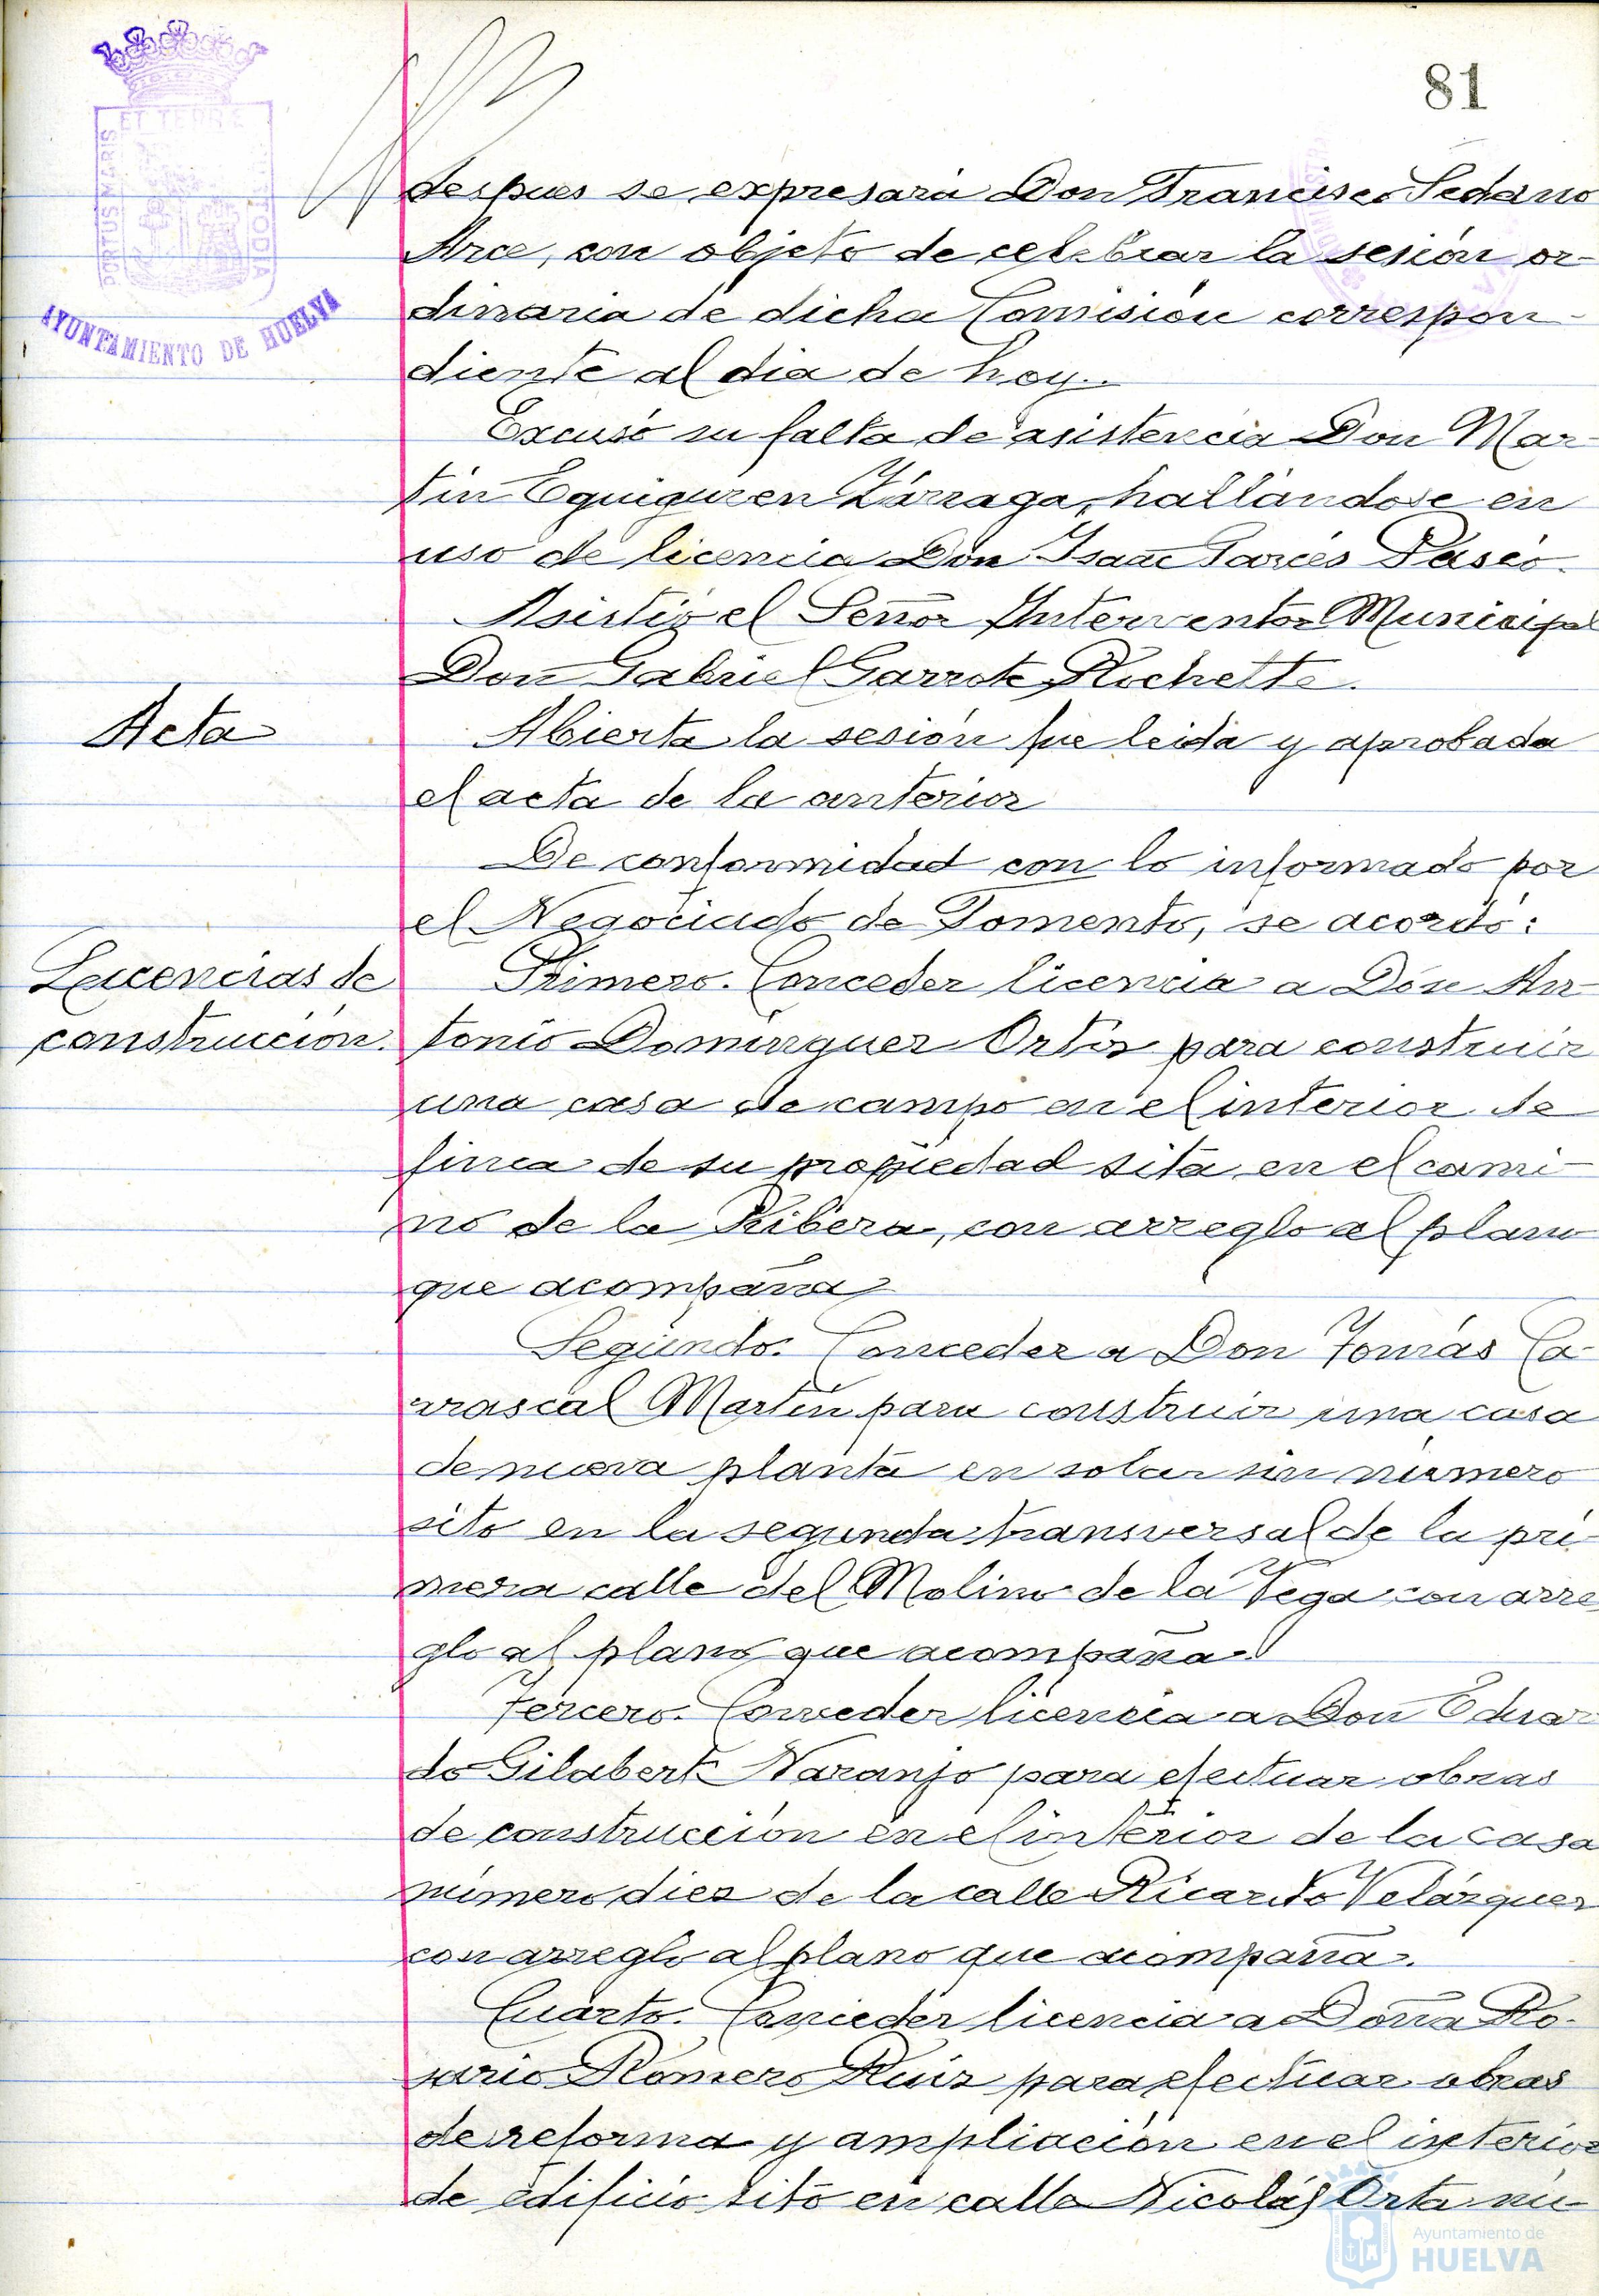 81
ET TERRÆ
PORTUS MARIS
CUSTODIA
AYUNTAMIENTO DE HUELVA
despues se expresará Don Francisco Sedano
Arce, con objeto de celebrar la sesión or-
dinaria de dicha Comisión correspon-
diente al dia de hoy.
Excusó su falta de asistencia Don Mar-
tin Eguiguren Zárraga, hallándose en
uso de licencia Don Isaac Garcés
Asistió el Señor Interventor Municipal
Don Gabriel Garrote Richette.
Acta
Abierta la sesión fue leida y aprobada
el acta de la anterior
De conformidad con lo informado por
el Negociado de Fomento, se acordó:
Licencias de
construccion.
Primero. Conceder licencia a Don An-
tonio Dominguez Ortiz para construir
una casa de campo en el interior de
finca de su propiedad sita en el cami-
no de la Ribera, con arreglo al plano
que acompaña
Segundo. Conceder a Don Tomás Ca-
rrascal Martin para construir una casa
de nueva planta en solar sin número
sito en la segunda transversal de la pri-
mera calle del Molino de la Vega con arre-
glo al plano que acompaña.
Tercero. Conceder licencia a Don Eduar-
do Gilabert Naranjo para efectuar obras
de construcción en el interior de la casa
número diez de la calle Ricardo Velázquez
con arreglo al plano que acompaña.
Cuarto. Conceder licencia a Doña Ro-
sario Romero Ruiz para efectuar obras
de reforma y ampliación en el interior
de edificio sito en calle Nicolás Orta nú-
Ayuntamiento de
HUELVA